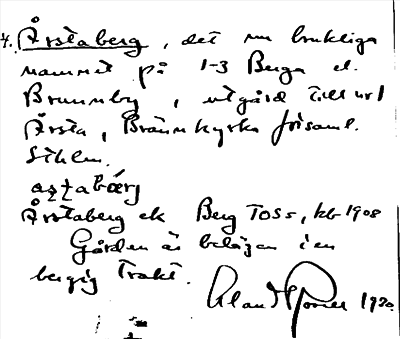 4. Årstaberg, det nu brukliga
namnet på 1-3 Berga el.
Brunnby, utgård till nr 1
Årsta, Brännkyrka förs:aml.
Sthlm.
Årstaberg ek Berg Toss, kb 1908
Gården är belägen i en
bergig trakt.
1920